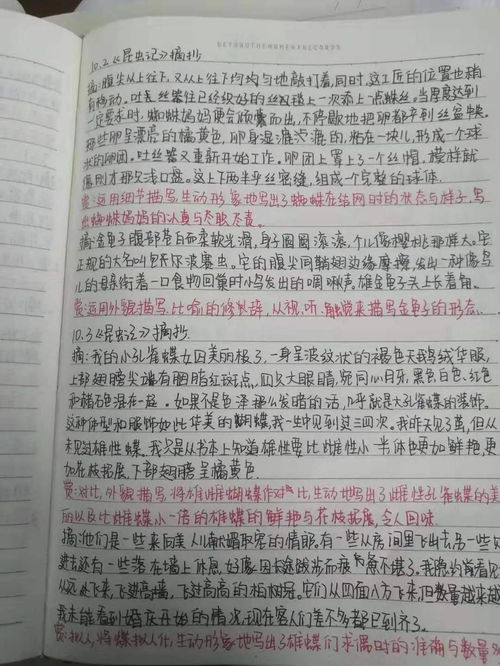 BEYONDTHEMOMENTRECORDS
10.2《昆虫记》摘抄
摘:腹尖从上往下,又从上往下均均匀地敲打着,同时,这工匠的位置也稍
有移动。吐丝器往已经织好的丝毯上一次添上一点蛛丝。当厚度达到
一定要求时,蜘蛛妈妈便会倾囊而出,不停歇地把卵都产到丝盆中来。
那些卵呈漂亮的橘黄色,卵身湿漉漉的,粘在一块儿,形成一个球
状的卵团。吐丝器又重新开始工作。卵团上罩上了一个丝帽,模样就
像刚才那只浅口盘。这上下两半严丝密缝,组成一个完整的球体.
赏:运用细节描写,生动形象地写出了蜘蛛在结网时的状态与样子,写
出蜘蛛妈妈的认真与尽职尽责。
摘:金龟子腹部苍白而柔软光滑,身子圆圆滚滚,个儿像樱桃那样大。它
正规的大名叫包齐尔波赛虫。它的腹尖同鞘翅边缘摩擦,发出一种像鸟
儿的母亲衔着一口食物回巢时小鸟发出的啁啾声,雄金龟子头上长着角.
赏:运用外貌描写,比喻的修辞,从视、听、触觉来描写金龟子的形态.
10.3《昆虫记》摘抄.
摘:我的小孔雀蝶女囚美丽极了,一身呈波纹状的褐色天鹅绒华服,
上部翅膀尖端有胭脂红斑点,四只大眼睛,宛同心月牙,黑色白色、红色
和赭石色混在一起。如果不是色泽那么发暗的话,几乎就是大孔雀蝶的装饰。
这种体型和服饰如此华美的蝴蝶,我一生中见到过三四次。我昨天见了茧,但从
未见过雄性蝶。我只是从书本上知道雄性要比雌性小一半体色更加鲜艳,更
加花枝招展,下部翅膀呈橘黄色.
赏:对比,外貌描写,将雄雌蝴蝶作对比,生动地写出了雌性孔雀蝶的美
丽以及比雌蝶小一倍的雄蝶的鲜艳与花枝招展,令人回味.
摘:他们是一些来向美人儿献媚取宠的情郎。有一些从房间里飞出去,另一些
进去还有一些落在墙上休息,好像因长途跋涉而疲惫不堪了。我隐约看见
从远处飞来,飞进高墙,飞进高高的柏树冠。它们从四面八方飞来,但数量越来越
我未能看到婚庆开始的情况,现在客人们差不多都已到齐了.
赏:拟人,将蝶拟人化,生动形象地写出了雄蝶们求偶时的准确与数量